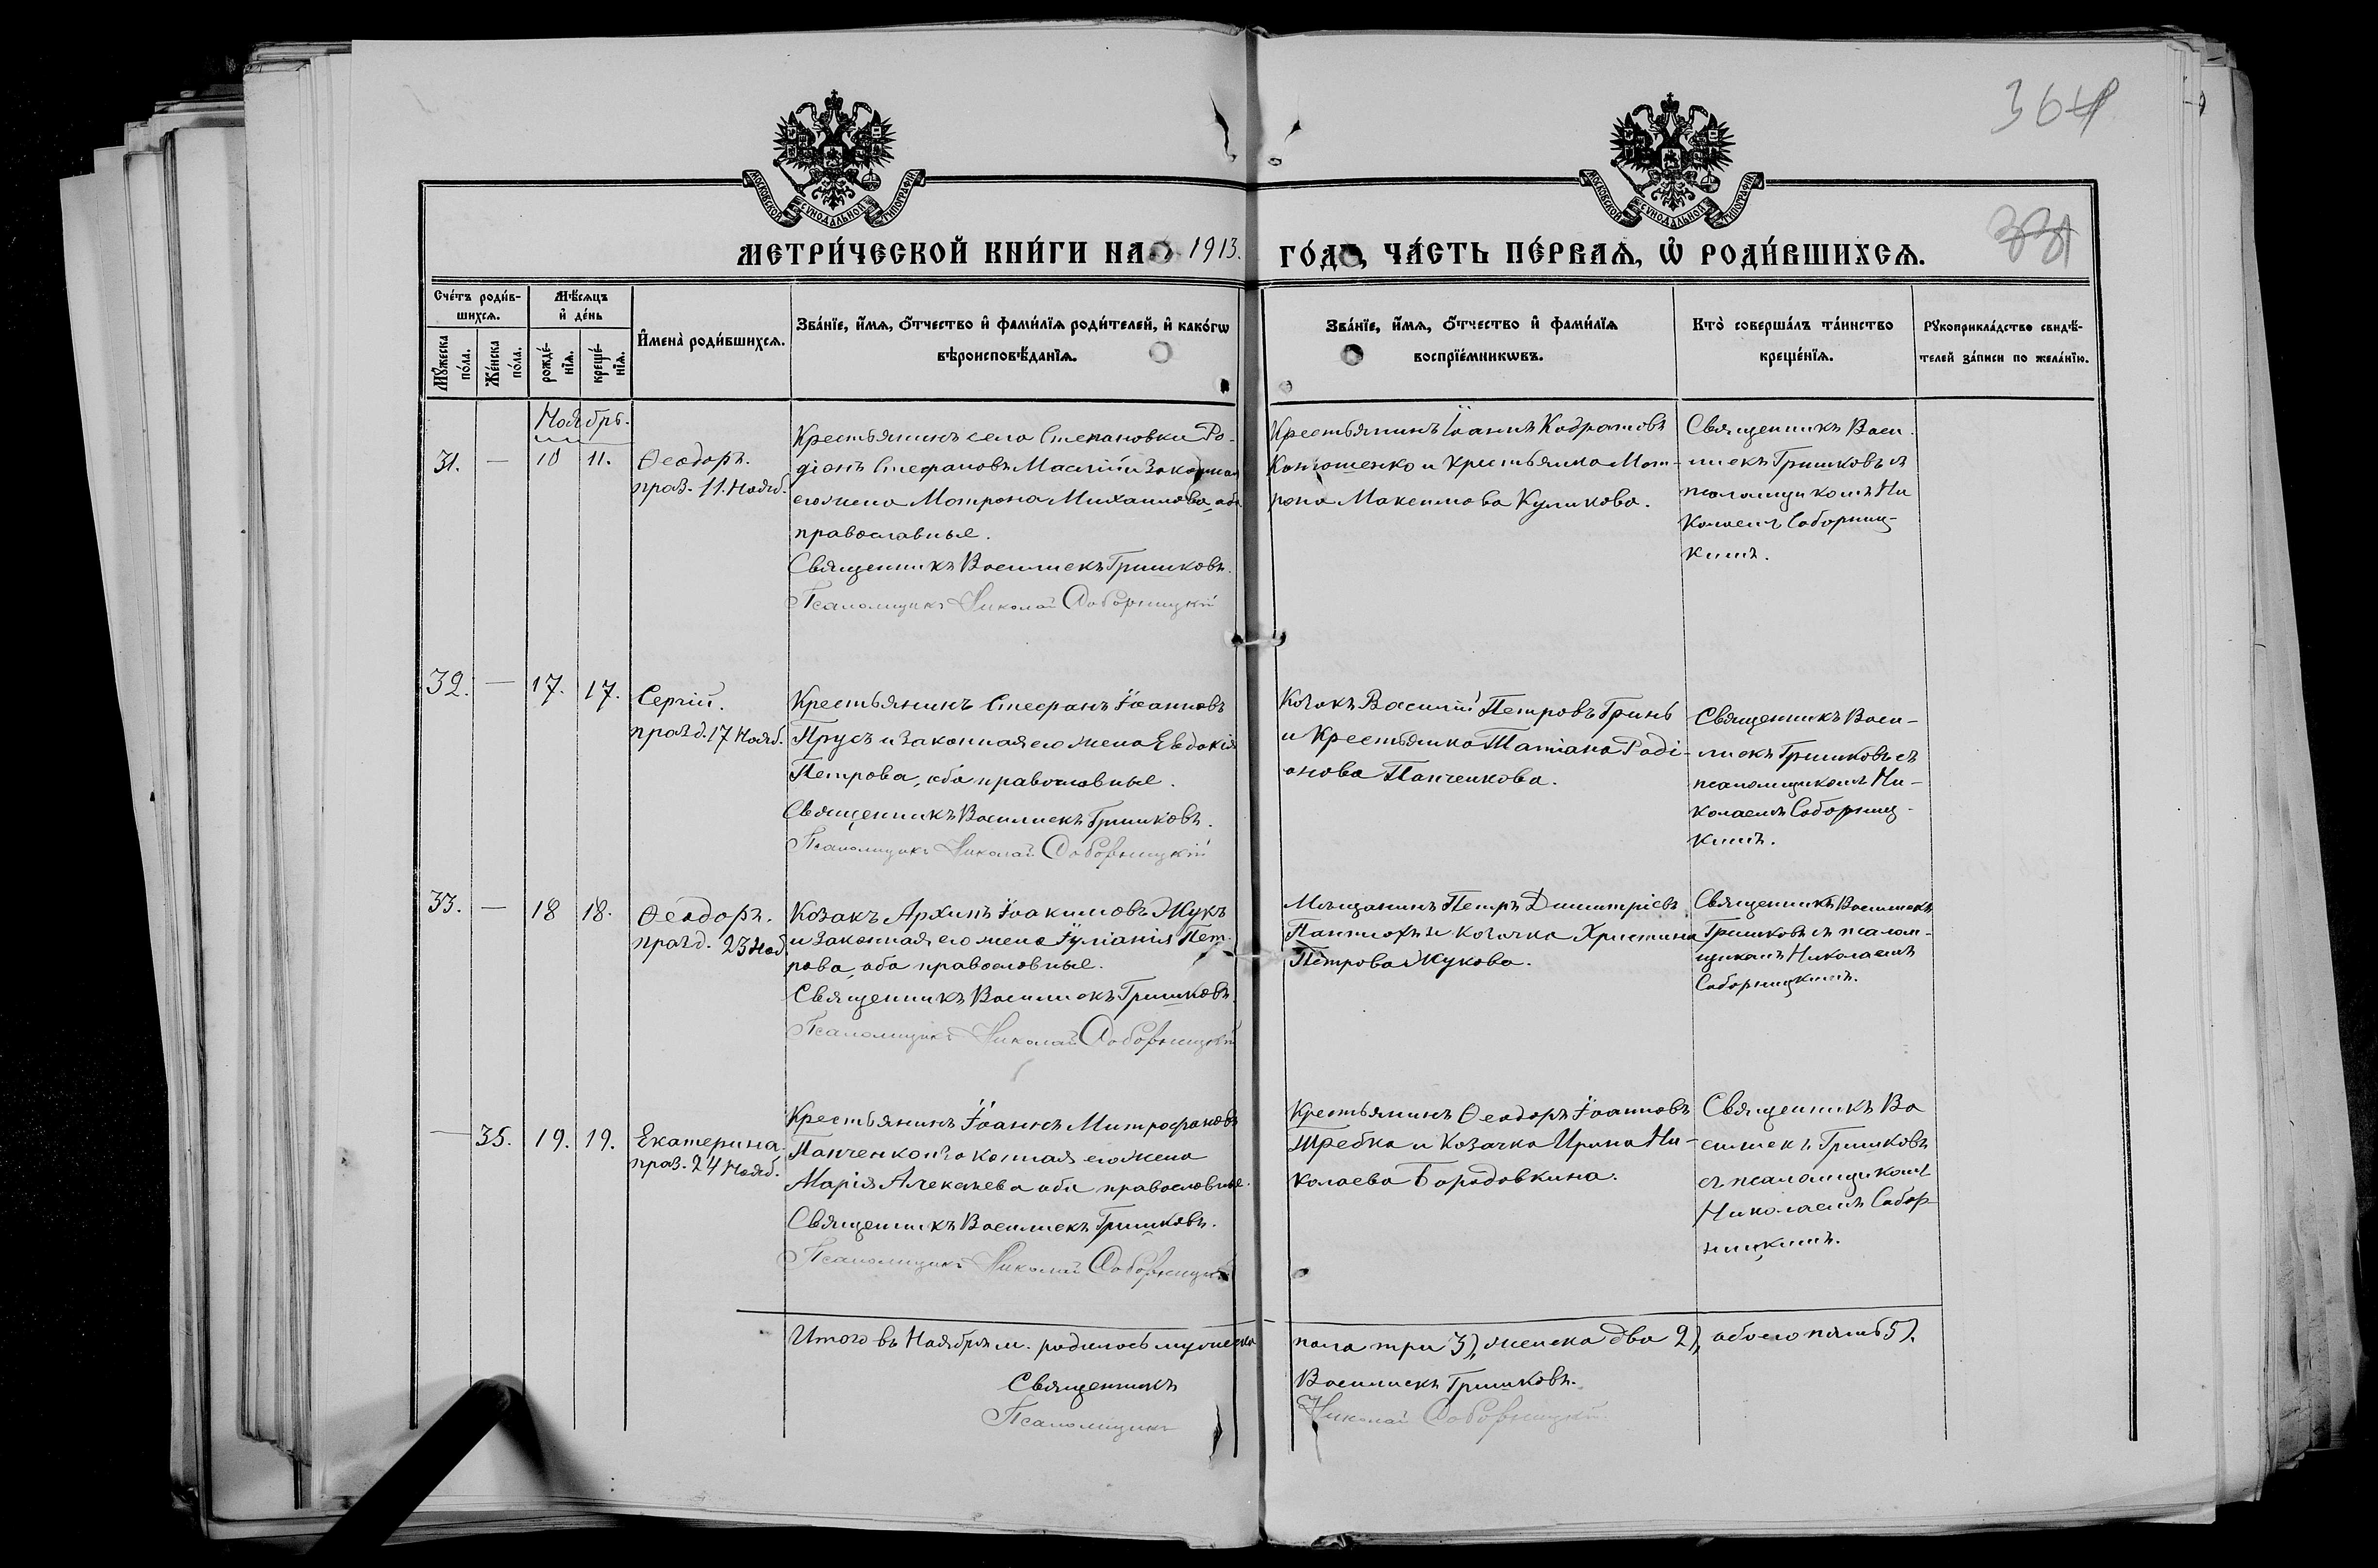 364
331
МОСКОВСКОЙ СѴНОДАЛЬНОЙ ТИПОГРАФІИ
МОСКОВСКОЙ СѴНОДАЛЬНОЙ ТИПОГРАФІИ
МЕТРИ́ЧЕСКОЙ КНИ́ГИ НА 1913. ГО́ДЪ, ЧА́СТЬ ПЕ́РВАѦ, Ѡ҆ РОДИ́ВШИХСѦ.
Сче́тъ роди́в-
шихсѧ.
Мꙋ́жеска по́ла.
Же́нска по́ла.
Мѣ́сѧцъ
и҆ де́нь
рожде́-
нїѧ.
креще́-
нїѧ.
И҆мена̀ роди́вшихсѧ.
Зва́нїе, и҆́мѧ, ѻ҆́тчество и҆ фами́лїѧ роди́телей, и҆ како́гѡ
вѣроисповѣ́данїѧ.
Зва́нїе, и҆́мѧ, ѻ҆́тчество и҆ фами́лїѧ
воспрїе́мникѡвъ.
Кто̀ соверша́лъ та́инство
креще́нїѧ.
Рꙋкоприкла́дство свидѣ́-
телей за́писи по жела́нїю.
Ноябрь.
31. — 10 11.
Ѳеодоръ.
праз. 11. Нояб.
Крестьянинъ села Степановки Ро-
діонъ Стефановъ Маслій и законная
его жена Матрона Михаилова, оба
православные.
Священникъ Василискъ Гришковъ.
Псаломщикъ Николай Соборницкій
Крестьянинъ Іоаннъ Кодратовъ
Конюшенко и крестьянка Мат-
рона Максимова Куликова.
Священникъ Васи-
лискъ Гришковъ съ
псаломщикомъ Ни
колаемъ Соборниц-
кимъ.
32. — 17. 17.
Сергій.
празд. 17 Нояб.
Крестьянинъ Стефанъ Іоанновъ
Прусъ и законная его жена Евдокія
Петрова, оба православные.
Священникъ Василискъ Гришковъ.
Псаломщикъ Николай Соборницкій
Козакъ Василій Петровъ Гринь
и крестьянка Татіана Раді-
онова Панченкова.
Священникъ Васи-
лискъ Гришковъ съ
псаломщикомъ Ни-
колаемъ Соборниц-
кимъ.
33. — 18 18.
Ѳеодоръ.
празд. 23 Нояб.
Козакъ Архипъ Іоакимовъ Жукъ
и законная его жена Іуліанія Пет-
рова, оба православные.
Священникъ Василискъ Гришковъ.
Псаломщикъ Николай Соборницкій
Мѣщанинъ Петръ Димитріевъ
и козачка Христина
Петрова Жукова.
Священникъ Василискъ
Гришковъ съ псалом-
щикомъ Николаемъ
Соборницкимъ.
— 35. 19. 19.
Екатерина
праз. 24 Нояб.
Крестьянинъ Іоаннъ Митрофановъ
Панченко и законная его жена
Марія Алексѣева оба православные.
Священникъ Василискъ Гришковъ.
Псаломщикъ Николай Соборницкій
Крестьянинъ Ѳеодоръ Іоанновъ
Требка и козачка Ирина Ни-
колаева Бородовкина.
Священникъ Ва
силискъ Гришковъ
съ псаломщикомъ
Николаемъ Собор
ницкимъ.
Итого въ Ноябрѣ м. родилось мужеска пола три 3), женска два 2), обоего пять 5).
Священникъ Василискъ Гришковъ.
Псаломщикъ Николай Соборницкій